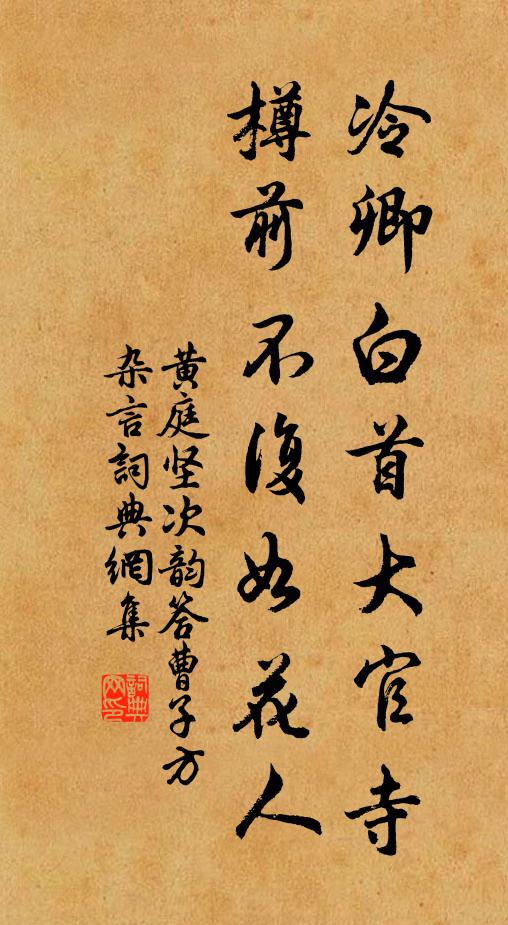 冷卿白首大官寺
樽前不復如花人
黄庭坚次韵答曹子方
杂言詞典網集
詞典网印